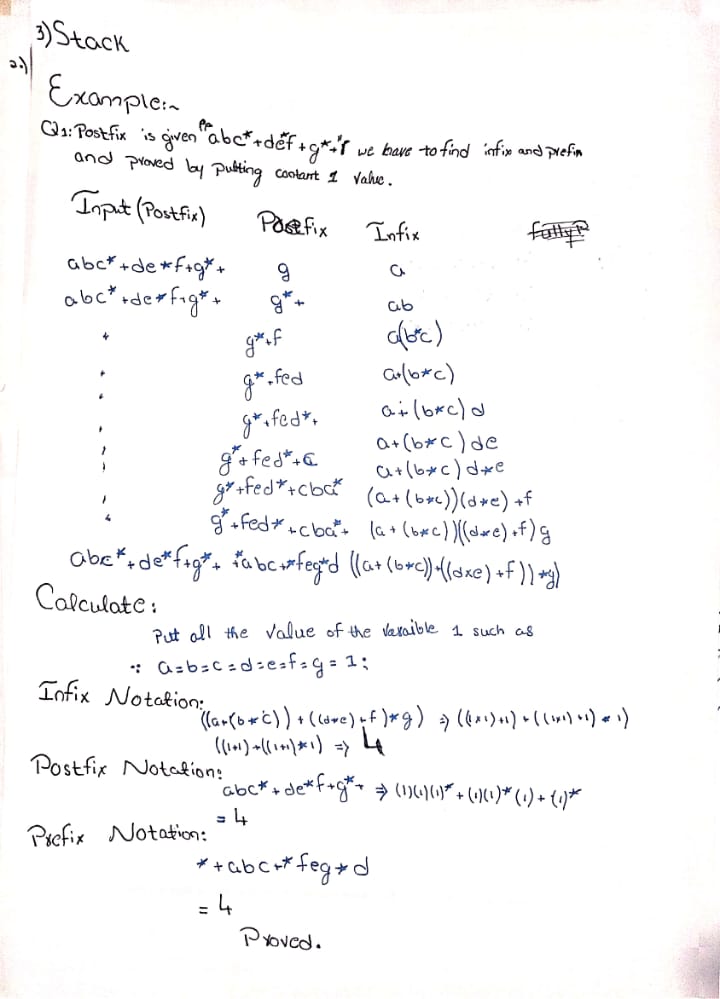 3) Stack
2.)
Example:~
Q1: Postfix is given "abc*+def+g*+" we have to find infix and prefix
and proved by putting 1 value.
Input (Postfix) Postfix Infix
abc*+de*f+g*+ g a
abc*+de*f+g*+ g*+ ab
g*+f a(b*c)
g*+fed a+(b*c)
g*+fed*+ a+(b*c)d
g*+fed*+c a+(b*c)de
g*+fed*+cba* a+(b*c)d*e
g*+fed*+cba*+ (a+(b*c))(d*e)+f
(a+(b*c))((d*e)+f)g
abc*+de*f+g*+ *abc+*feg*d ((a+(b*c))+((d*e)+f))*g)
Calculate:
Put all the value of the varaible 1 such as
∵ a=b=c=d=e=f=g=1;
Infix Notation:
((a+(b*c))+((d*e)+f)*g) => ((1*1)+1)+((1*1)+1)*1)
((1+1)+((1+1)*1) => 4
Postfix Notation:
abc*+de*f+g*+ => (1)(1)(1)*+(1)(1)*(1)+(1)*
= 4
Prefix Notation:
*+abc+*feg*d
= 4
Proved.